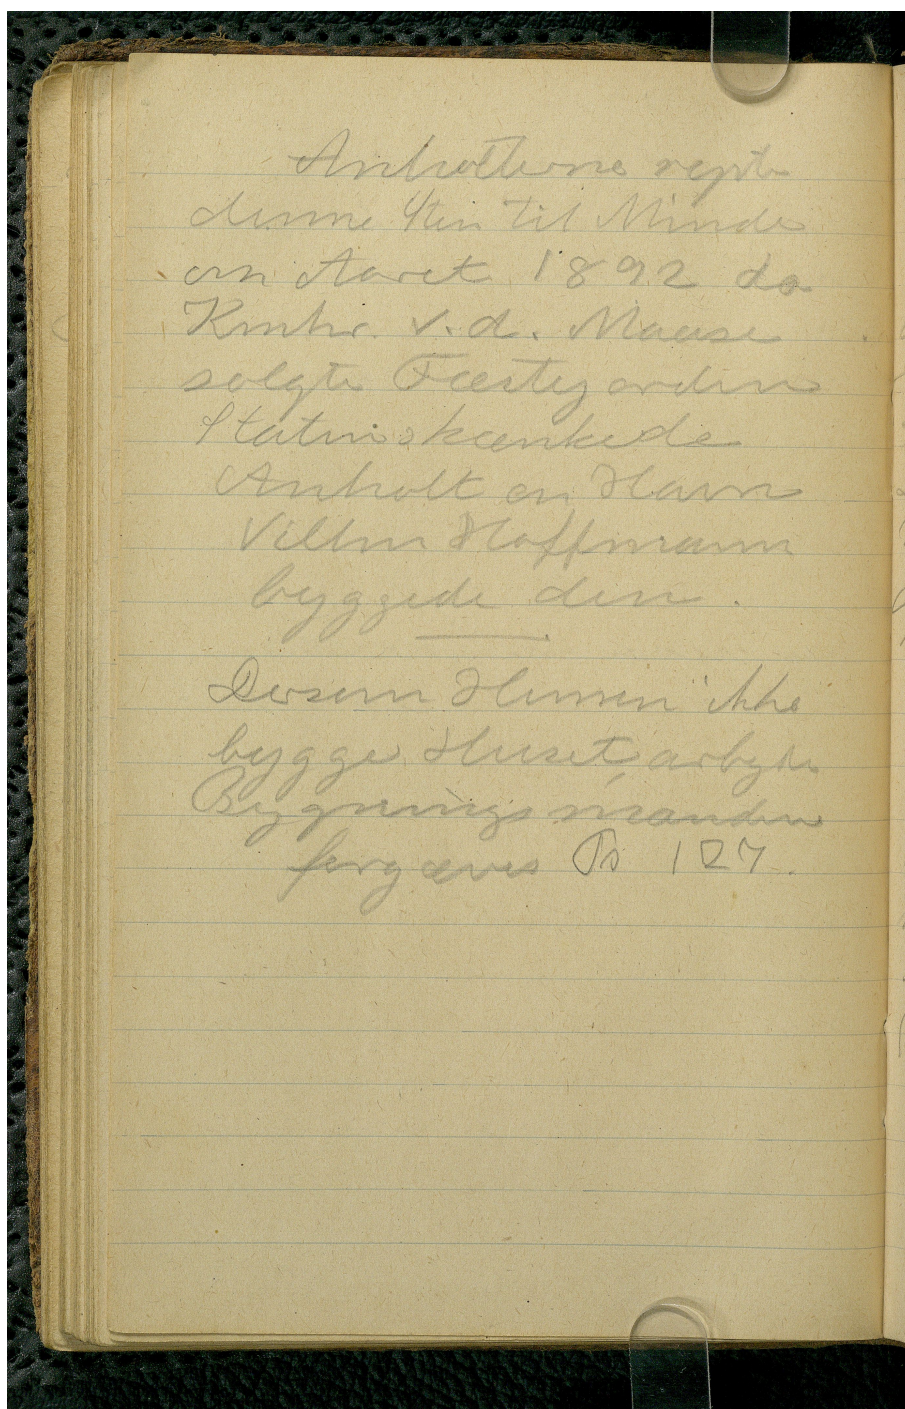 Anholterne rejste
denne Sten til Minde
om Aaret 1892 da
Kmhr. v.d. Maase
solgte Fæstegaardene
Staten skænkede
Anholt en Havn
Villm Hoffmann
byggede den.
Dersom Herren ikke
bygger Huset, arbejde
Bygningsmændene
forgæves Ps 127.